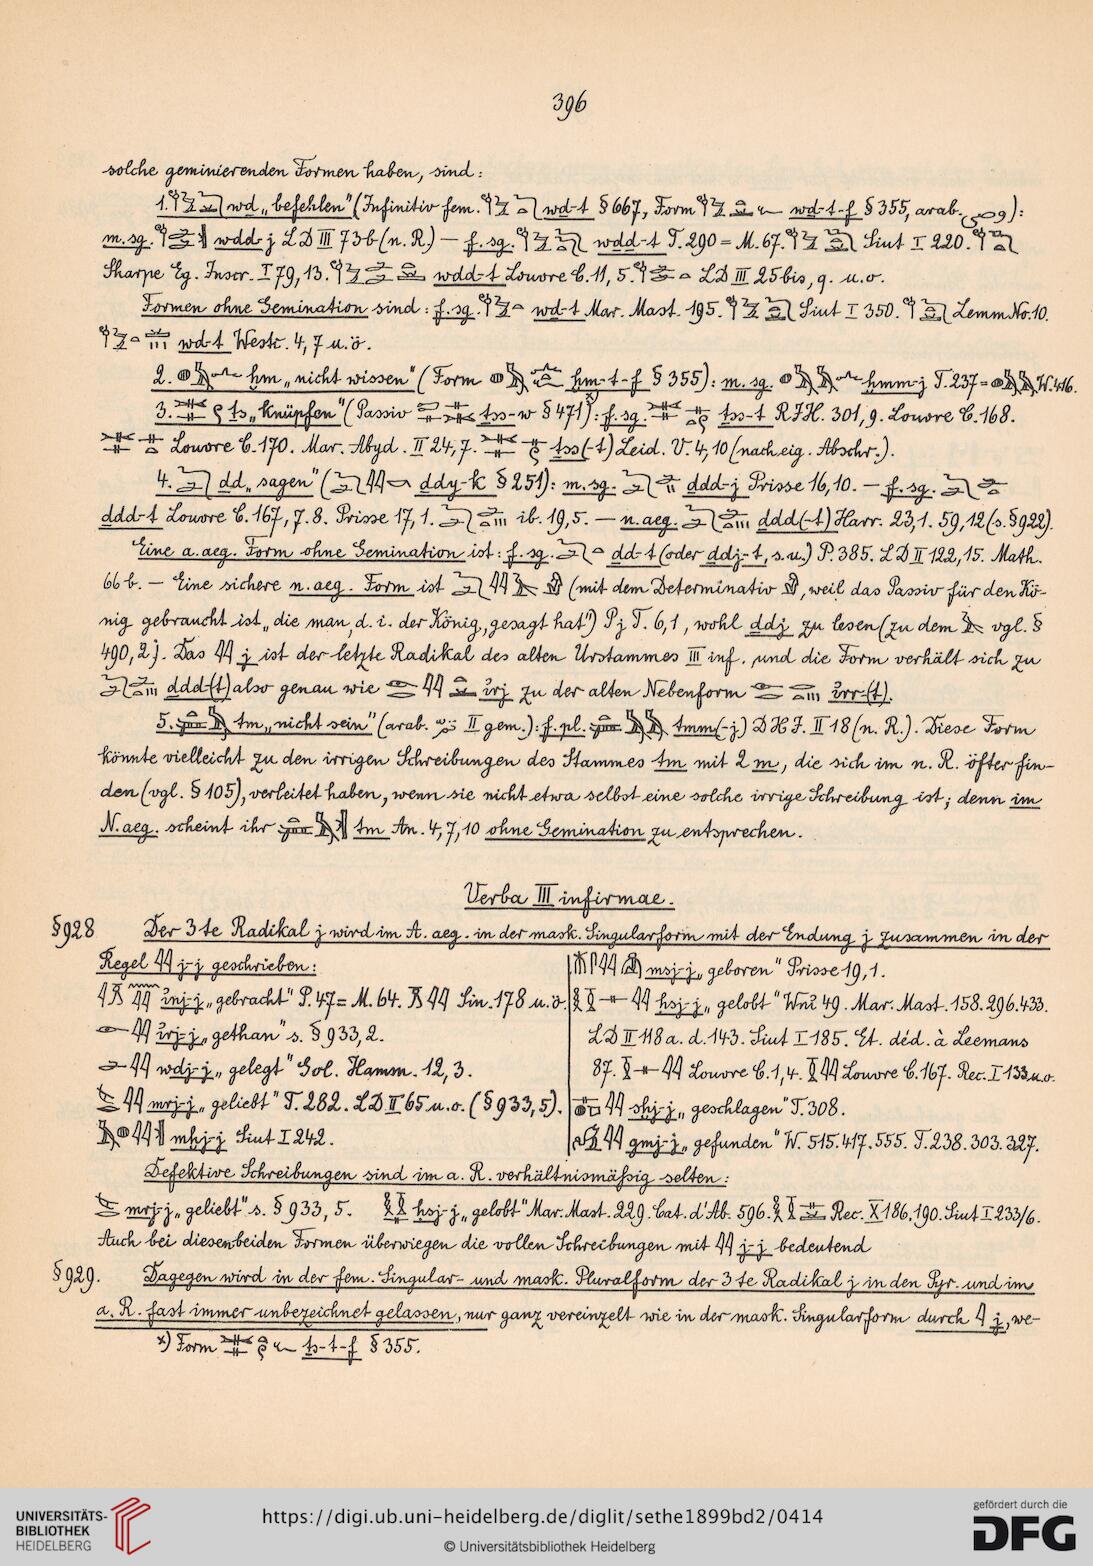 396
solche geminierenden Formen haben, sind:
1. wd „befehlen" (Infinitiv fem. wd-t § 667, Form wd-t-f § 355, arab. وصى):
m. sg. wdd-j LD III 73b (n. R.) — f. sg. wdd-t T. 290 = M. 67. Siut I 220.
Sharpe Eg. Inscr. I 79, 13. wdd-t Louvre C. 11, 5. LD III 25 bis, q. u. o.
Formen ohne Gemination sind: f. sg. wd-t Mar. Mast. 195. Siut I 350. Lemm No. 10.
wd-t Westc. 4, 7 u. ö.
2. ḫm „nicht wissen" (Form ḫm-t-f § 355): m. sg. ḫmm-j T. 237 = W. 416.
3. ts „knüpfen" (Passiv tss-w § 471) x): f. sg. tss-t RJH. 301, 9. Louvre C. 168.
Louvre C. 170. Mar. Abyd. II 24, 7. tss(-t) Leid. V. 4, 10 (nach eig. Abschr.).
4. dd „sagen" (ddy-k § 251): m. sg. ddd-j Prisse 16, 10. — f. sg.
ddd-t Louvre C. 167, 7. 8. Prisse 17, 1. ib. 19, 5. — n. aeg. ddd(-t) Harr. 23, 1. 59, 12 (s. § 922).
Eine a. aeg. Form ohne Gemination ist: f. sg. dd-t (oder ddj-t, s. u.) P. 385. LD II 122, 15. Math.
66 b. — Eine sichere n. aeg. Form ist (mit dem Determinativ , weil das Passiv für den Kö-
nig gebraucht ist „die man, d. i. der König, gesagt hat") Pj T. 6, 1, wohl ddj zu lesen (zu dem vgl. §
490, 2). Das j ist der letzte Radikal des alten Urstammes III inf. und die Form verhält sich zu
ddd-(t) also genau wie ỉrj zu der alten Nebenform ỉrr-(t).
5. tm „nicht sein" (arab. II gem.): f. pl. tmm(-j) DHJ. II 18 (n. R.). Diese Form
könnte vielleicht zu den irrigen Schreibungen des Stammes tm mit 2 m, die sich im n. R. öfter fin-
den (vgl. § 105), verleitet haben, wenn sie nicht etwa selbst eine solche irrige Schreibung ist; denn im
N. aeg. scheint ihr tm An. 4, 7, 10 ohne Gemination zu entsprechen.
Verba III infirmae.
§ 928 Der 3te Radikal j wird im A. aeg. in der mask. Singularform mit der Endung j zusammen in der
Regel j-j geschrieben:
ỉnj-j „gebracht" P. 47 = M. 64. Sin. 178 u. ö.
ỉrj-j „gethan" s. § 933, 2.
wdj-j „gelegt" Gol. Hamm. 12, 3.
mrj-j „geliebt" T. 282. LD II 65 u. o. (§ 933, 5).
mḥj-j Siut I 242.
msj-j „geboren" Prisse 19, 1.
ḥsj-j „gelobt" Wnỉ 49. Mar. Mast. 158. 296. 433.
LD II 118 a. d. 143. Siut I 185. Et. déd. à Leemans
87. Louvre C. 1, 4. Louvre C. 167. Rec. I 133 u. o.
sḫj-j „geschlagen" T. 308.
gmj-j „gefunden" W. 515. 417. 555. T. 238. 303. 327.
Defektive Schreibungen sind im a. R. verhältnismäßig selten:
mrj-j „geliebt" s. § 933, 5. ḥsj-j „gelobt" Mar. Mast. 229. Cat. d'Ab. 596. Rec. X 186, 190. Siut I 233/6.
Auch bei diesen beiden Formen überwiegen die vollen Schreibungen mit j-j bedeutend
§ 929. Dagegen wird in der fem. Singular- und mask. Pluralform der 3te Radikal j in den Pyr. und im
a. R. fast immer unbezeichnet gelassen, nur ganz vereinzelt wie in der mask. Singularform durch j, we-
x) Form ts-t-f § 355.
UNIVERSITÄTS-
BIBLIOTHEK
HEIDELBERG
https://digi.ub.uni-heidelberg.de/diglit/sethe1899bd2/0414
© Universitätsbibliothek Heidelberg
gefördert durch die
DFG